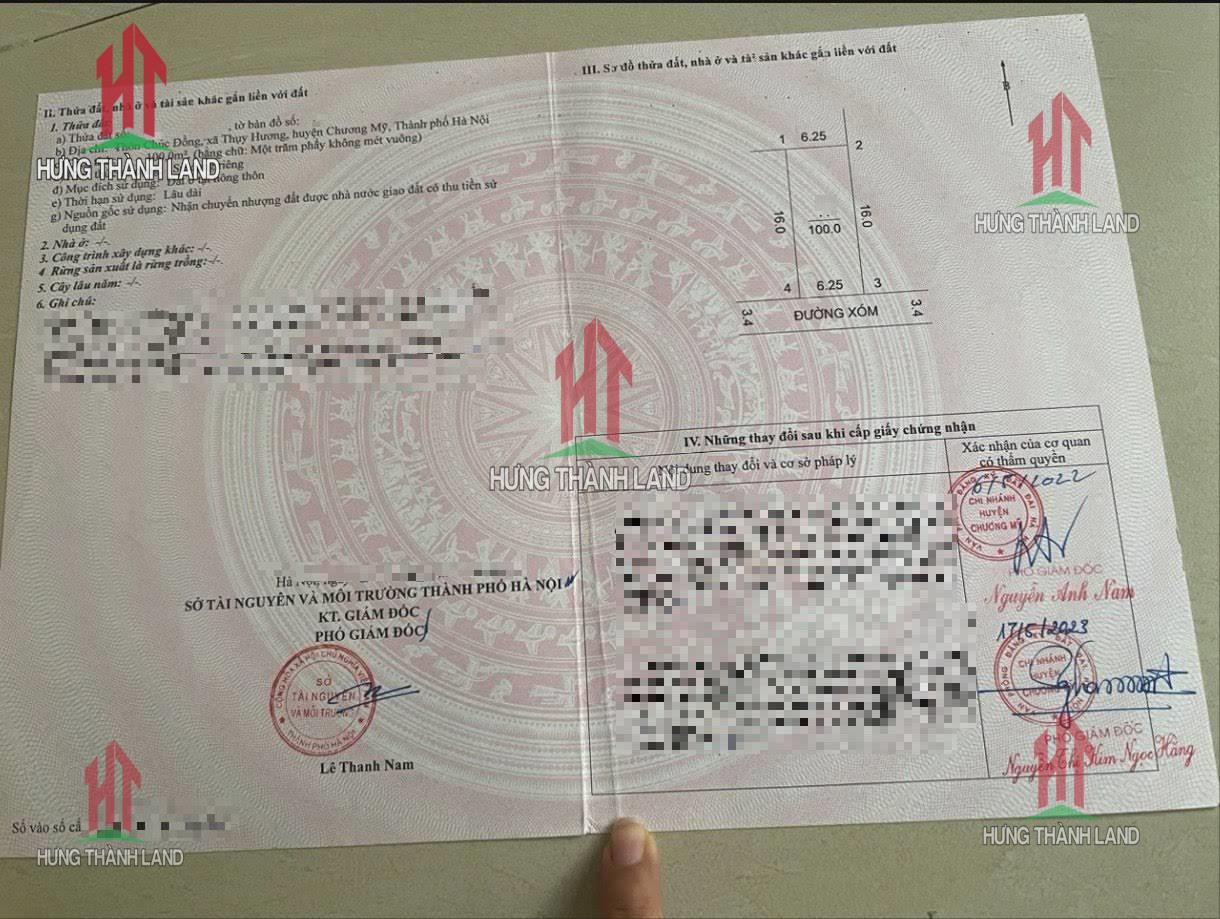 HƯNG THÀNH LAND
II. Thửa đất, nhà ở và tài sản khác gắn liền với đất
1. Thửa đất:
a) Thửa đất số: , tờ bản đồ số:
b) Địa chỉ: Thôn Chúc Đồng, xã Thụy Hương, huyện Chương Mỹ, Thành phố Hà Nội
100.0m², (bằng chữ: Một trăm phẩy không mét vuông)
riêng
đ) Mục đích sử dụng: Đất ở tại nông thôn
e) Thời hạn sử dụng: Lâu dài
g) Nguồn gốc sử dụng: Nhận chuyển nhượng đất được nhà nước giao đất có thu tiền sử
dụng đất
2. Nhà ở: -/-.
3. Công trình xây dựng khác: -/-.
4. Rừng sản xuất là rừng trồng: -/-.
5. Cây lâu năm: -/-.
6. Ghi chú:
Hà
SỞ TÀI NGUYÊN VÀ MÔI TRƯỜNG THÀNH PHỐ HÀ NỘI
KT. GIÁM ĐỐC
PHÓ GIÁM ĐỐC
CỘNG HÒA XÃ HỘI CHỦ NGHĨA
SỞ
TÀI NGUYÊN
VÀ MÔI TRƯỜNG
THÀNH PHỐ HÀ NỘI
Lê Thanh Nam
Số vào sổ cấ
HƯNG THÀNH LAND
III. Sơ đồ thửa đất, nhà ở và tài sản khác gắn liền với đất
B
HƯNG THÀNH LAND
1 6.25 2
16.0 100.0 16.0
4 6.25 3
3.4 ĐƯỜNG XÓM 3.4
HƯNG THÀNH LAND
IV. Những thay đổi sau khi cấp giấy chứng nhận
Nội dung thay đổi và cơ sở pháp lý
Xác nhận của cơ quan
có thẩm quyền
6/5/2022
CHI NHÁNH
HUYỆN
CHƯƠNG MỸ
PHÓ GIÁM ĐỐC
Nguyễn Anh Nam
17/5/2023
CHI NHÁNH
HUYỆN
CHƯƠNG
PHÓ GIÁM ĐỐC
Nguyễn Thị Kim Ngọc Hằng
HƯNG THÀNH LAND